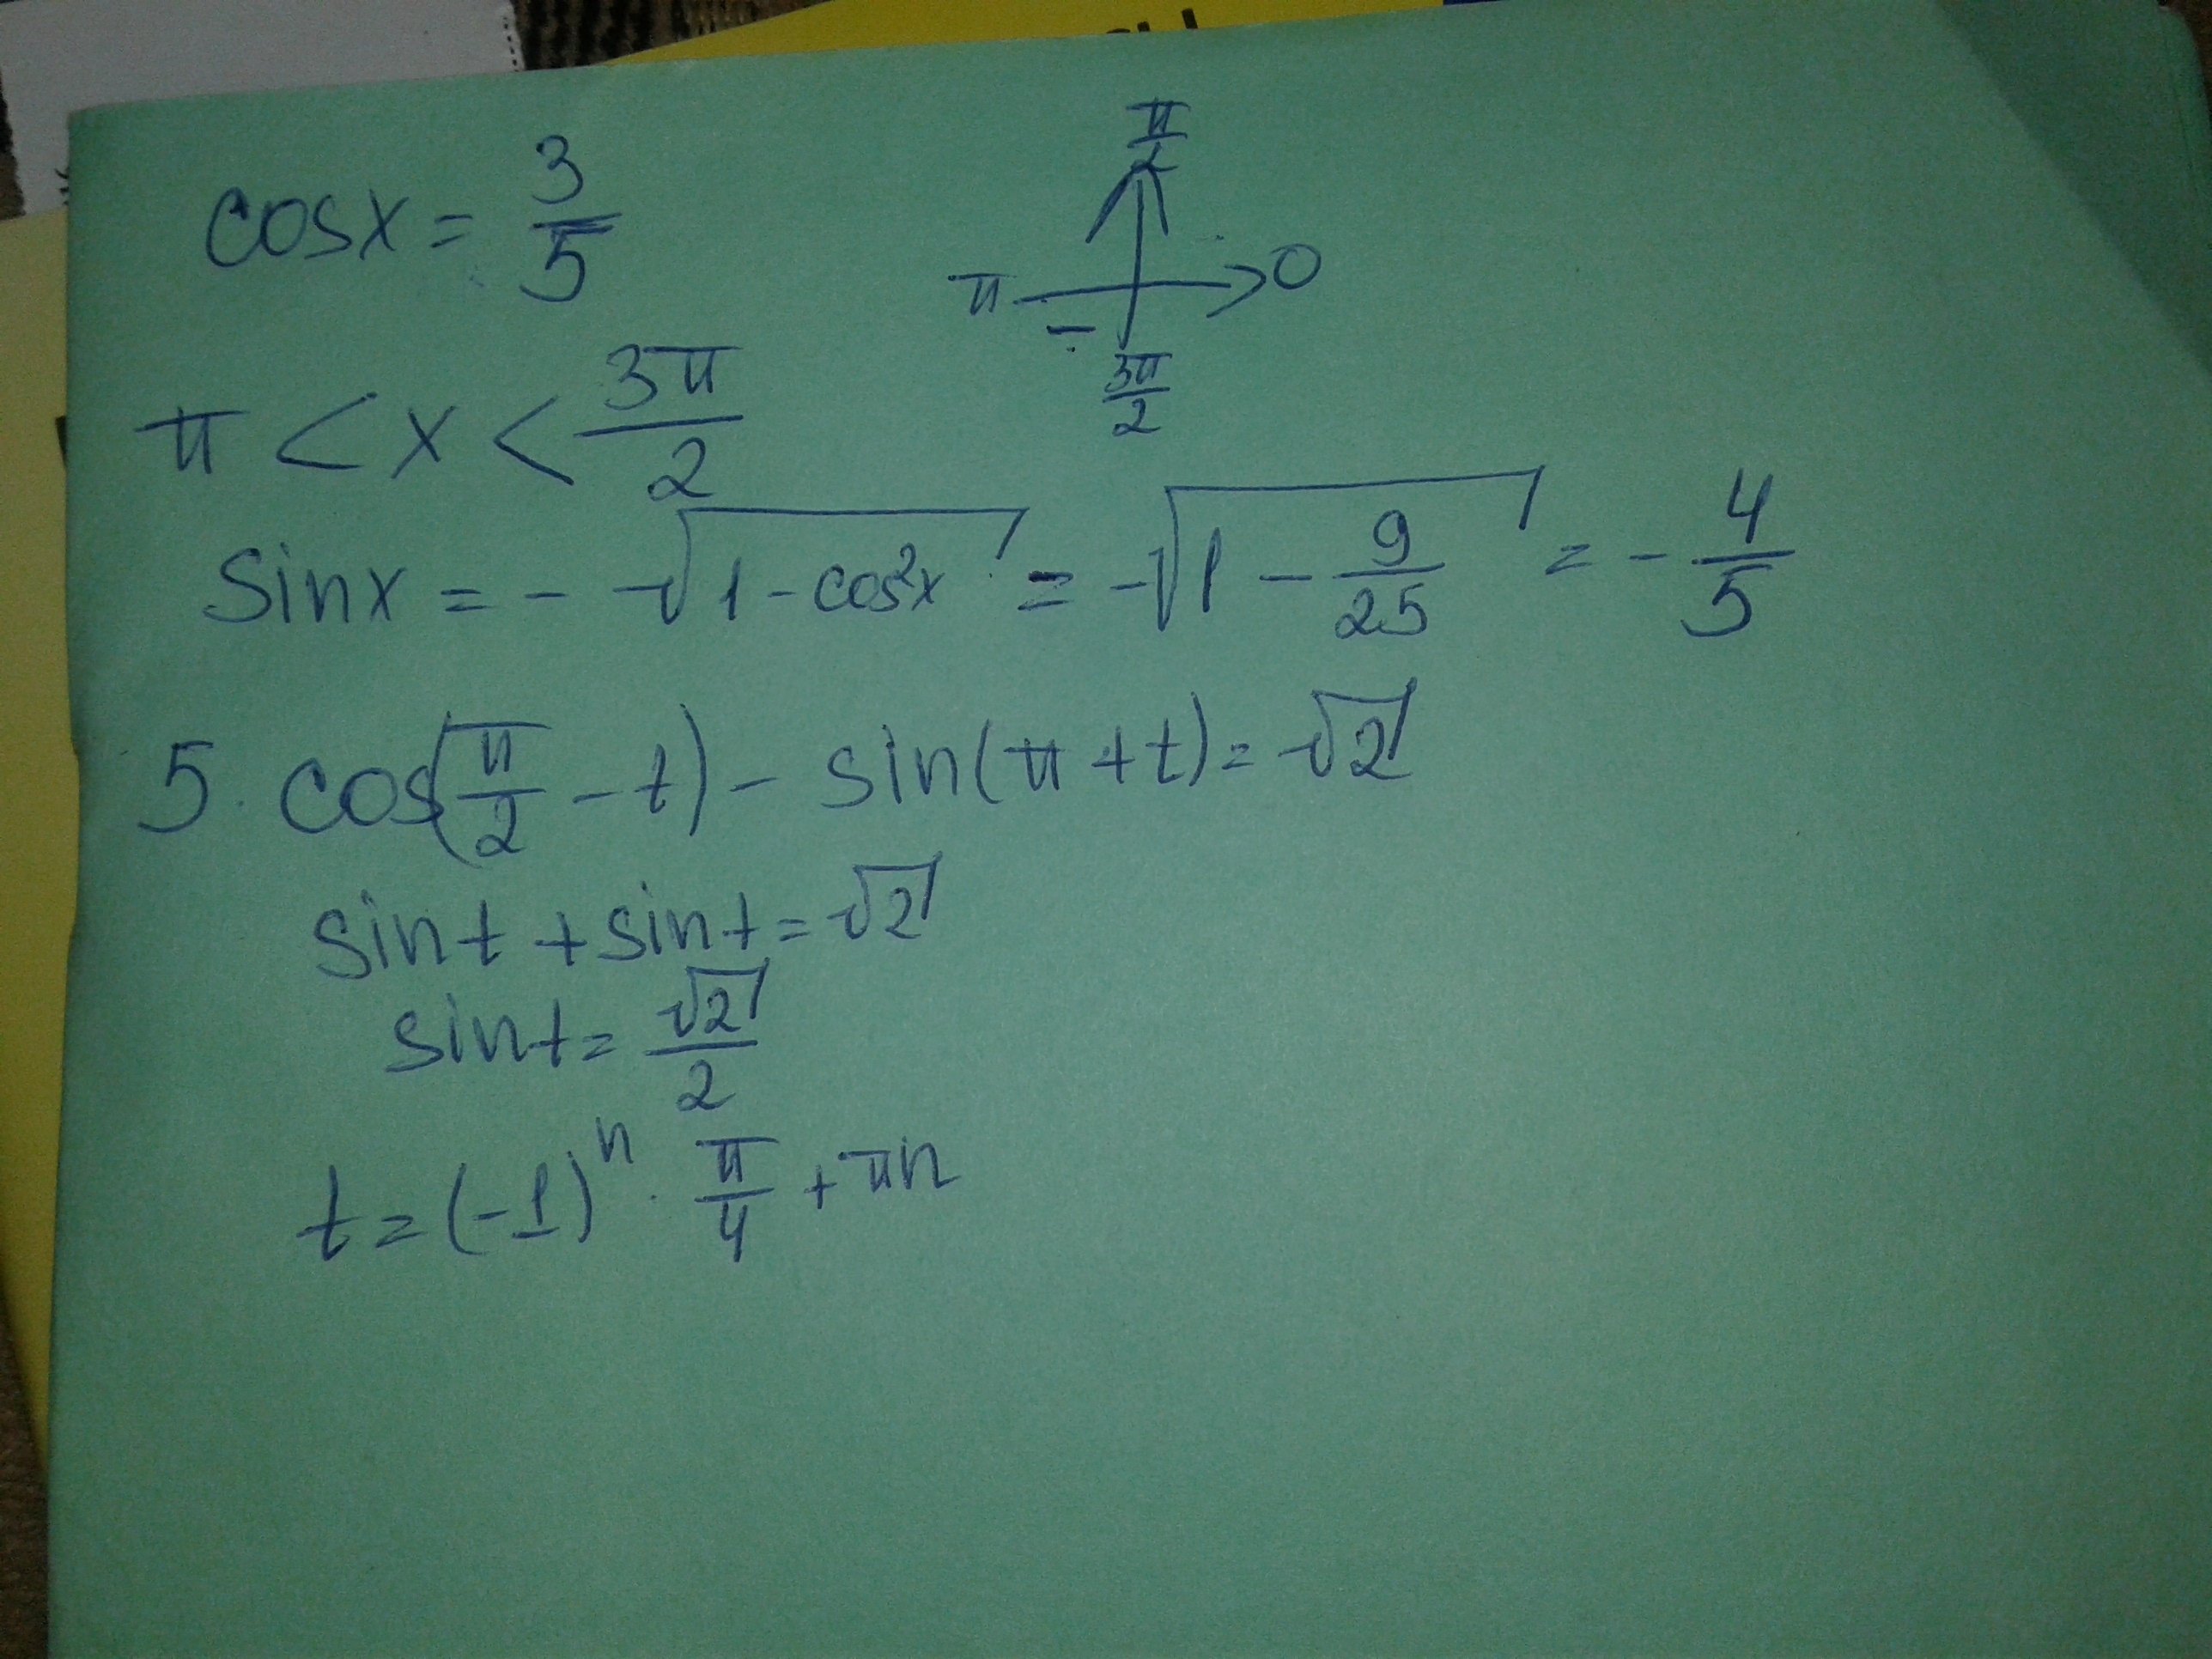 cosx = 3/5
π/2
π 0
3π/2
π < x < 3π/2
sinx = - √(1 - cos²x) = -√(1 - 9/25) = - 4/5
5. cos(π/2 - t) - sin(π + t) = √2
sint + sint = √2
sint = √2/2
t = (-1)ⁿ · π/4 + πn